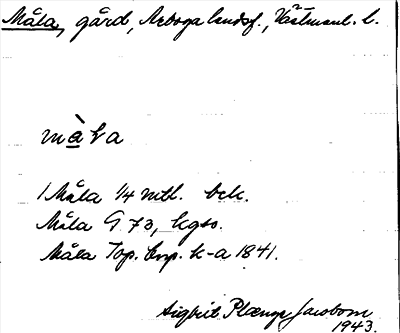 Måla, gård, Arboga landsf., Västmanl. l.
måla
1 Måla 1/4 mtl. bek.
Måla G 73, kgso.
Måla Top. Corp. k-a 1841.
Sigbrit Plænge Jacobson
1943.